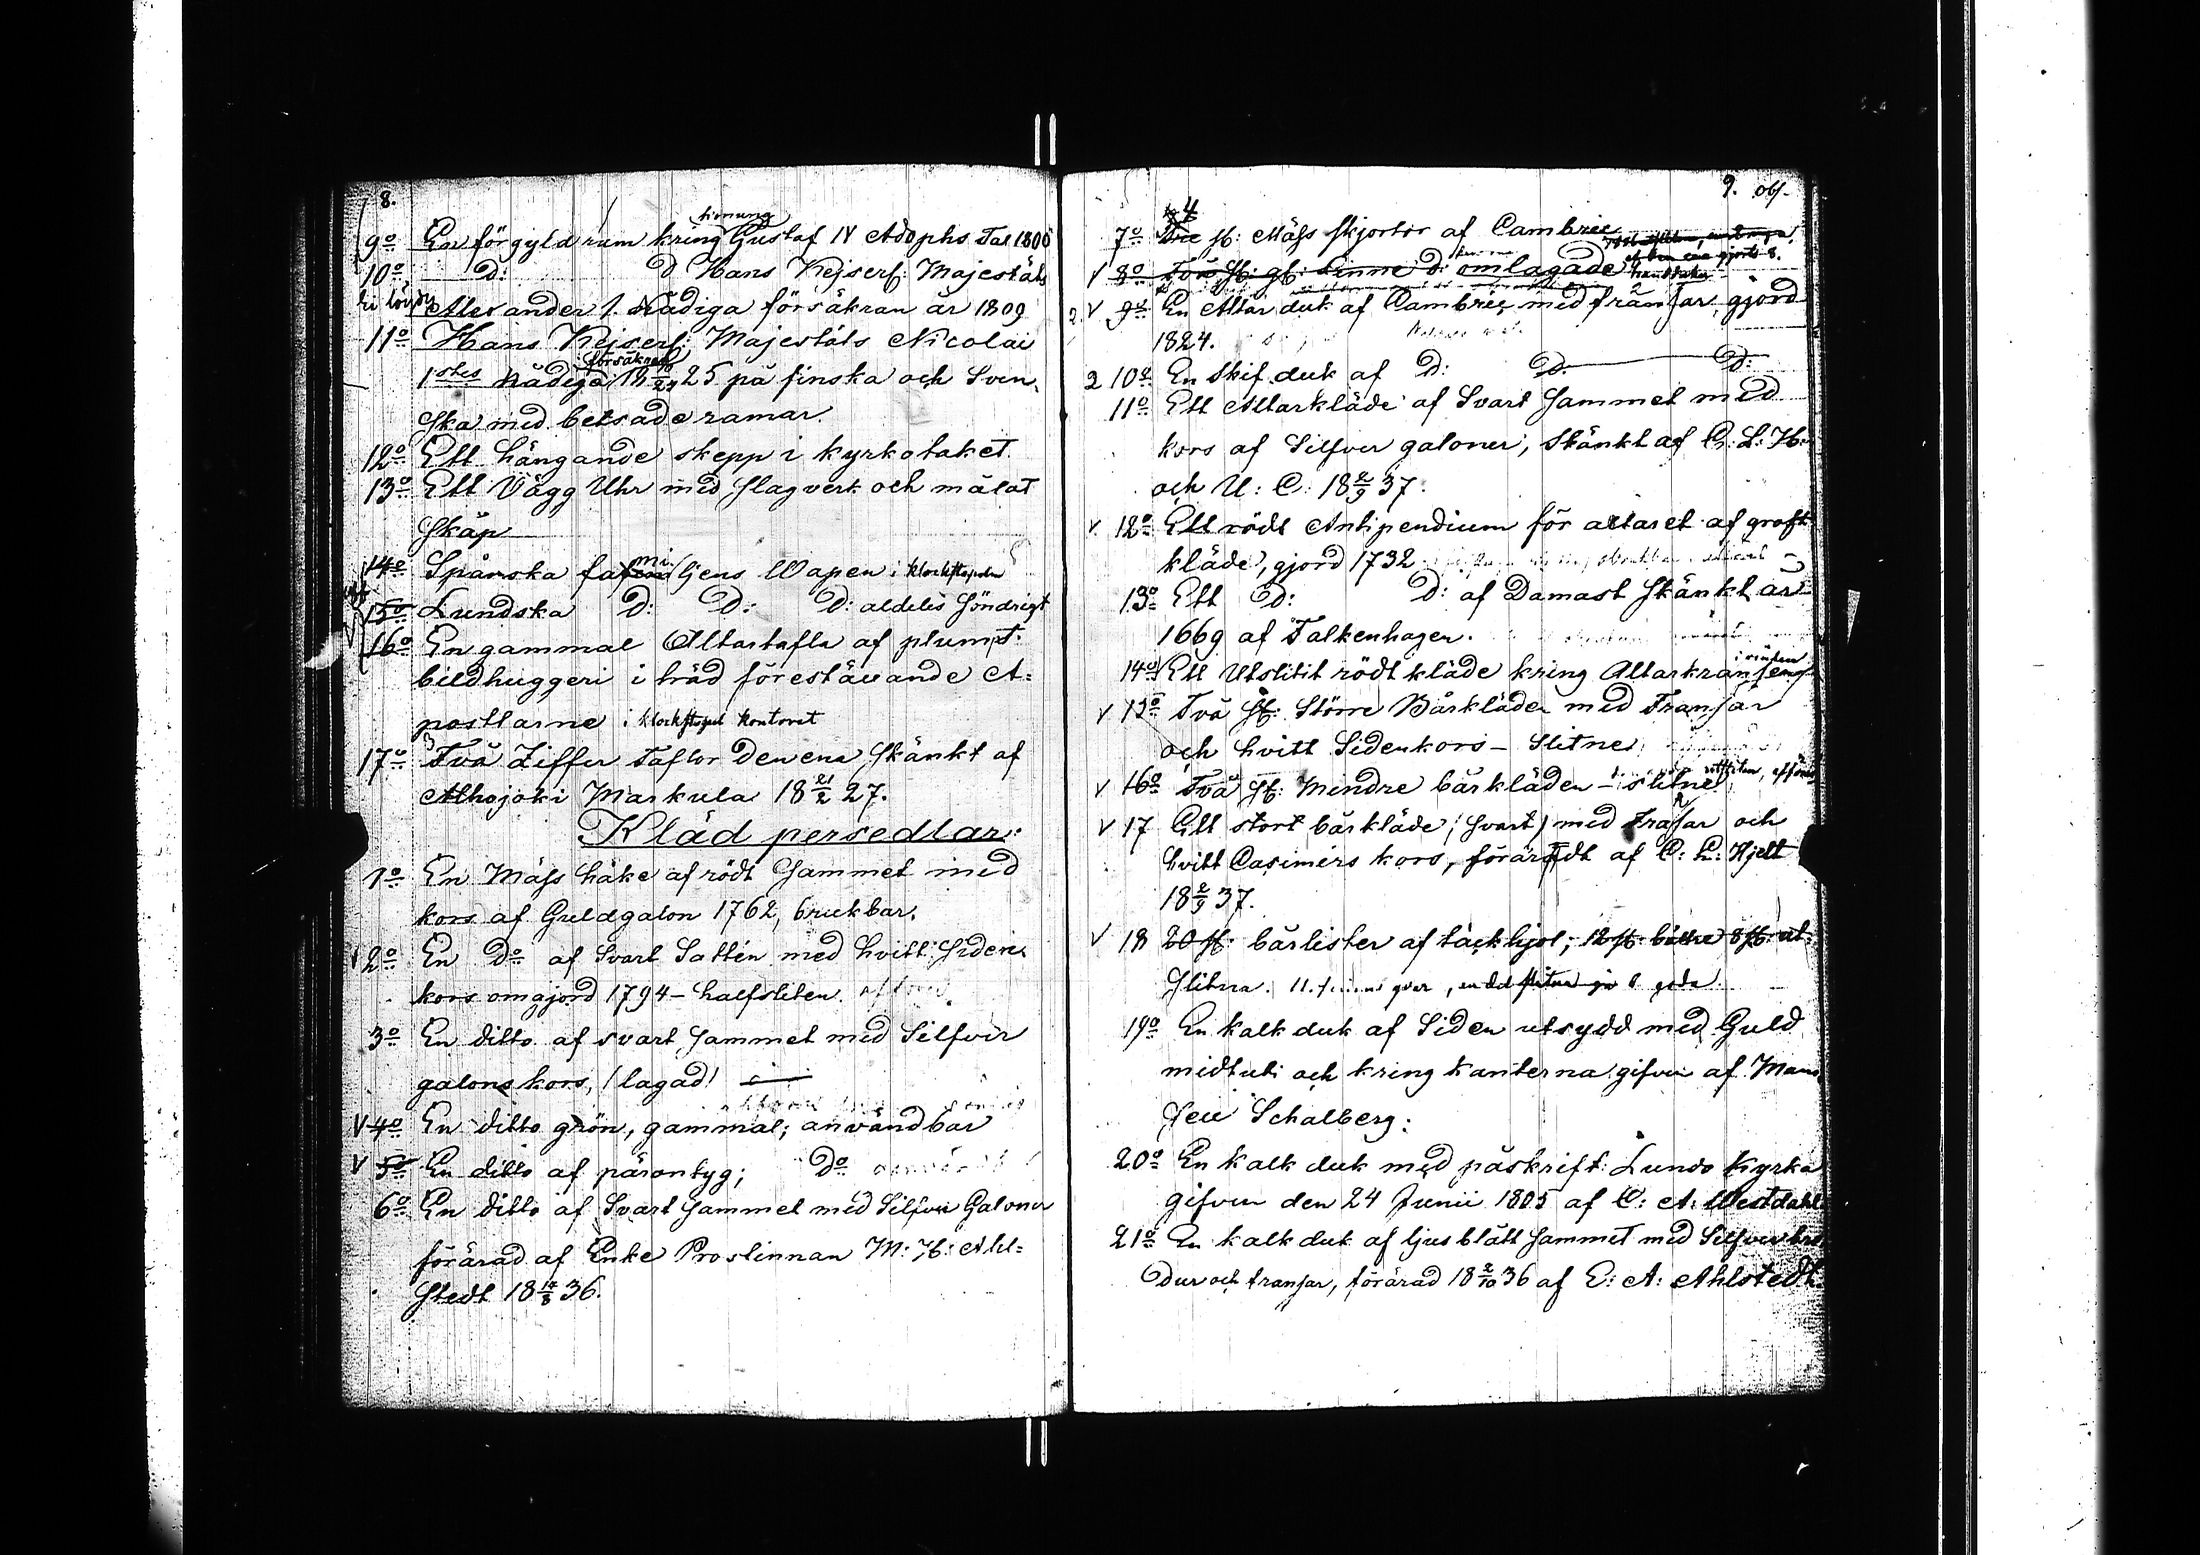 8.
9o En förgyld ram kring Gustaf IV Adophs Tal 1800
10o D: D Hans Kejserl: Majestäts
Alexander 1. Nådiga försäkran år 1809
11o Hans Kejserl: Majestäts Nicolai
1stes Nådiga försäkran 18 24 25 på finska och Sven-
ska med betsade ramar.
12o Ett hängande skepp i kyrkotaket.
13o Ett Vägg Uhr med slagverk och målat
Skåp
14o Spårska familjens Wapen i klockstapeln
15o Lundska D: D: D: aldeles söndrigt
16o En gammal Altartafla af plumpt
bildhuggeri i träd föreställande A-
postlarne i klockstapul kontoret
17o Två Ziffer Taflor den ena skänkt af
Alhojoki Markula 18 21/2 27.
Kläd persedlar:
1o En Mäss hake af rödt Sammet med
kors af Guldgalon 1762, brukbar.
2o En Do af Svart Sattin med hvitt Siden
kors omgjord 1794 - halfsliten.
3o En ditto af svart Sammet med Silfver
galons kors, (lagad)
V 4o En ditto grön, gammal; användbar
V 5o En ditto af pärontyg; Do
6o En ditto af Svart Sammet med Silfver Galoner
förärad af Enke Prostinnan M: H: Ahl-
stedt 18 14/8 36.
9.
4
7o st: Mäss skjortor af Cambric
V 8o Två st: gl: Linne d: omlagade
V 9o En Altar duk af Cambric, med fransar, gjord
1824.
2 10o En Skif duk af D: D: D:
11o Ett Altarkläde af Svart Sammet med
kors af Silfver galoner, skänkt af C: L: H:
och U: C: 18 2/9 37.
V 12o Ett rödt Antipendium för altaret af groft
kläde, gjord 1732
13o Ett D: D: af Damast skänkt år
1669 af Falkenhagen.
14o Ett Utslitit rödt kläde kring Altarkransen
V 15o Två st: Större Bårkläden med Fransar
och hvitt Sidenkors - Slitne
V 16o Två st: Mindre bårkläden - slitne
V 17 Ett stort bårkläde (svart) med Fransar och
hvitt Casimirs kors, förärdt af C: L: Hjelt
18 2/9 37.
V 18 20 st: bårlister af täckhjol; 12 st: bättre 8 st: ut-
slitna.
19o En kalk duk af Siden utsydd med Guld
midtuti och kring kanterna gifven af Mam
sell Schalberg:
20o En kalk duk med påskrift: Lundo Kyrka
gifven den 24 Junii 1805 af C: A: Westdahl
21o En kalk duk af ljusblått Sammet med Silfver bro
dur och fransar, förärad 18 2/10 36 af E: A: Ahlstedt